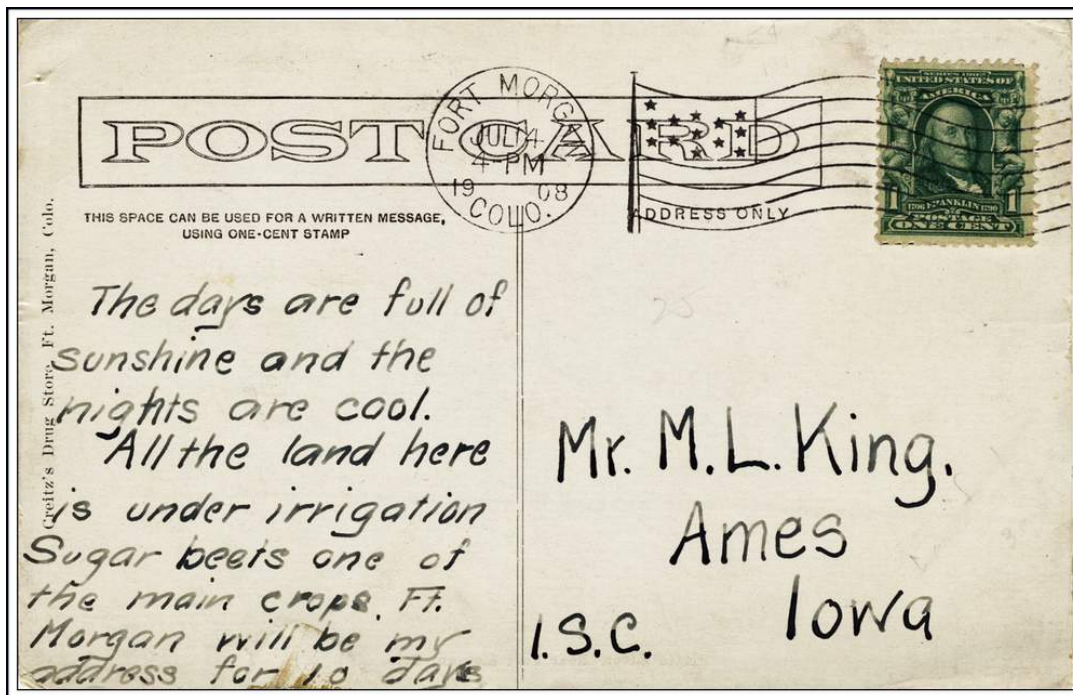 POST CARD
FORT MORG
JUL 14
4 PM
19 08
COLO.
SERIES 1902
UNITED STATES OF
AMERICA
1 1790 FRANKLIN 1790 1
POSTAGE
ONE CENT
THIS SPACE CAN BE USED FOR A WRITTEN MESSAGE,
USING ONE-CENT STAMP
ADDRESS ONLY
Creitz's Drug Store, Ft. Morgan, Colo.
The days are full of
sunshine and the
nights are cool.
All the land here
is under irrigation
Sugar beets one of
the main crops. Ft.
Morgan will be my
address for 10 days
25
Mr. M. L. King.
Ames
Iowa
I.S.C.